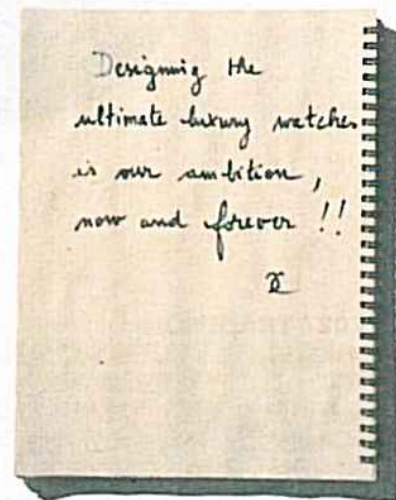 Designing the
ultimate luxury watches
is our ambition,
now and forever !!